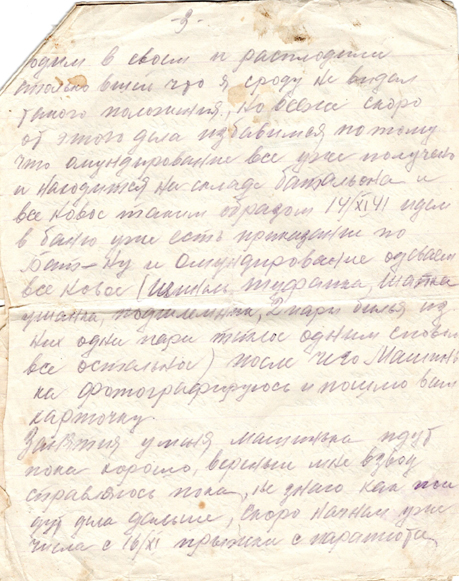 -3-
одим в своем и расплодили
столько вшей что я сроду не видал
такого положения, но всеже скоро
от этого дела избавимся потому
что амундирование все уже получено
и находится на складе батальона и
все новое таким образом 14/XI 41 идем
в баню уже есть приказание по
бат-ну и амундирование одеваем
все новое (шинель, шапка
ушанка, подшлемник, 2 пары белья из
них одна пара теплое одним словом
все остальное) после чего Машинь
ка фотографируюсь и пошлю вам
карточку.
Занятия у меня машинька идут
пока хорошо, взвод
справляюсь пока, не знаю как пой
дут дела дальше, скоро начнем уже
числа с 16/XI прыжки с парашюта